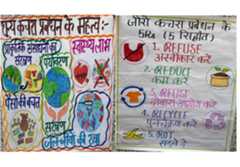 शून्य कचरा प्रबंधन के महत्व :-
प्राकृतिक संसाधनों का
संरक्षण
स्वास्थ्य लाभ
पर्यावरण
पैसों की बचत
संरक्षण
जीरो कचरा प्रबंधन के
5Rs (5 सिद्धांत)
1. REFUSE
अस्वीकार करें
2. REDUCE
कम करें
3. REUSE
करें
4. RECYCLE
पुनःचक्रण करें
5. ROT